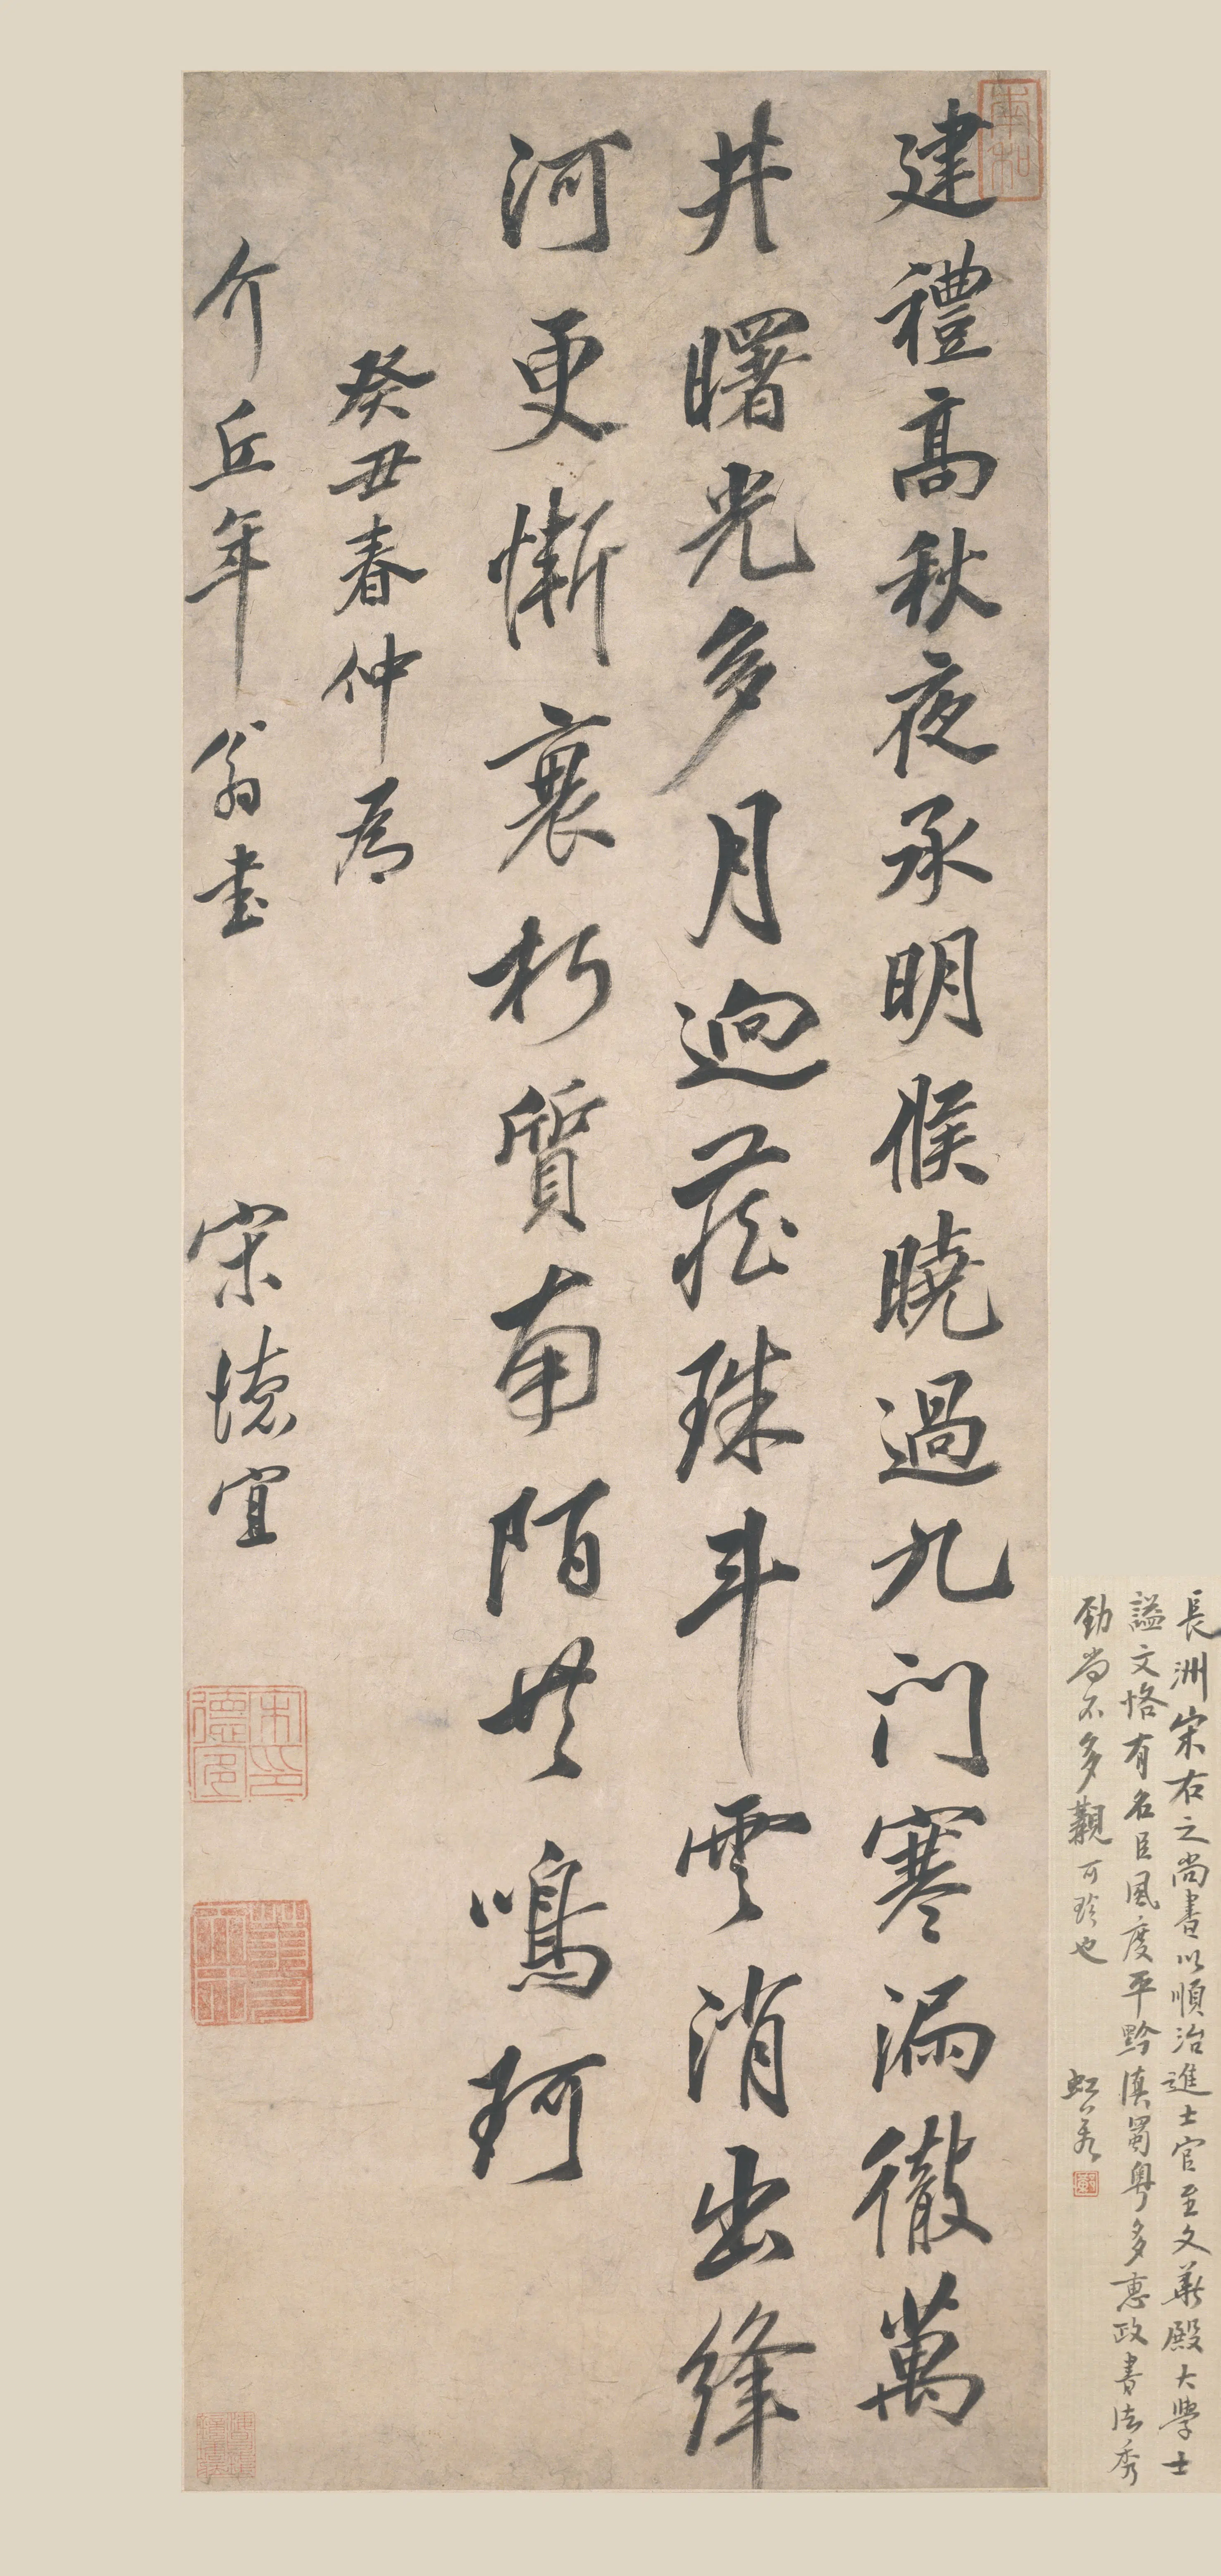 長洲宋右之尚書以順治進士官至文華殿大學士
謚文恪有名臣風度平黔滇蜀粵多惠政書法秀
勁尚不多觀可珍也
虹若
建禮高秋夜承明候曉過九門寒漏徹萬
井曙光多月逈藏珠斗雲消出絳
河更慚衰朽質南陌共鳴珂
癸丑春仲為
介丘年翁書
宋德宜
宋德宜印